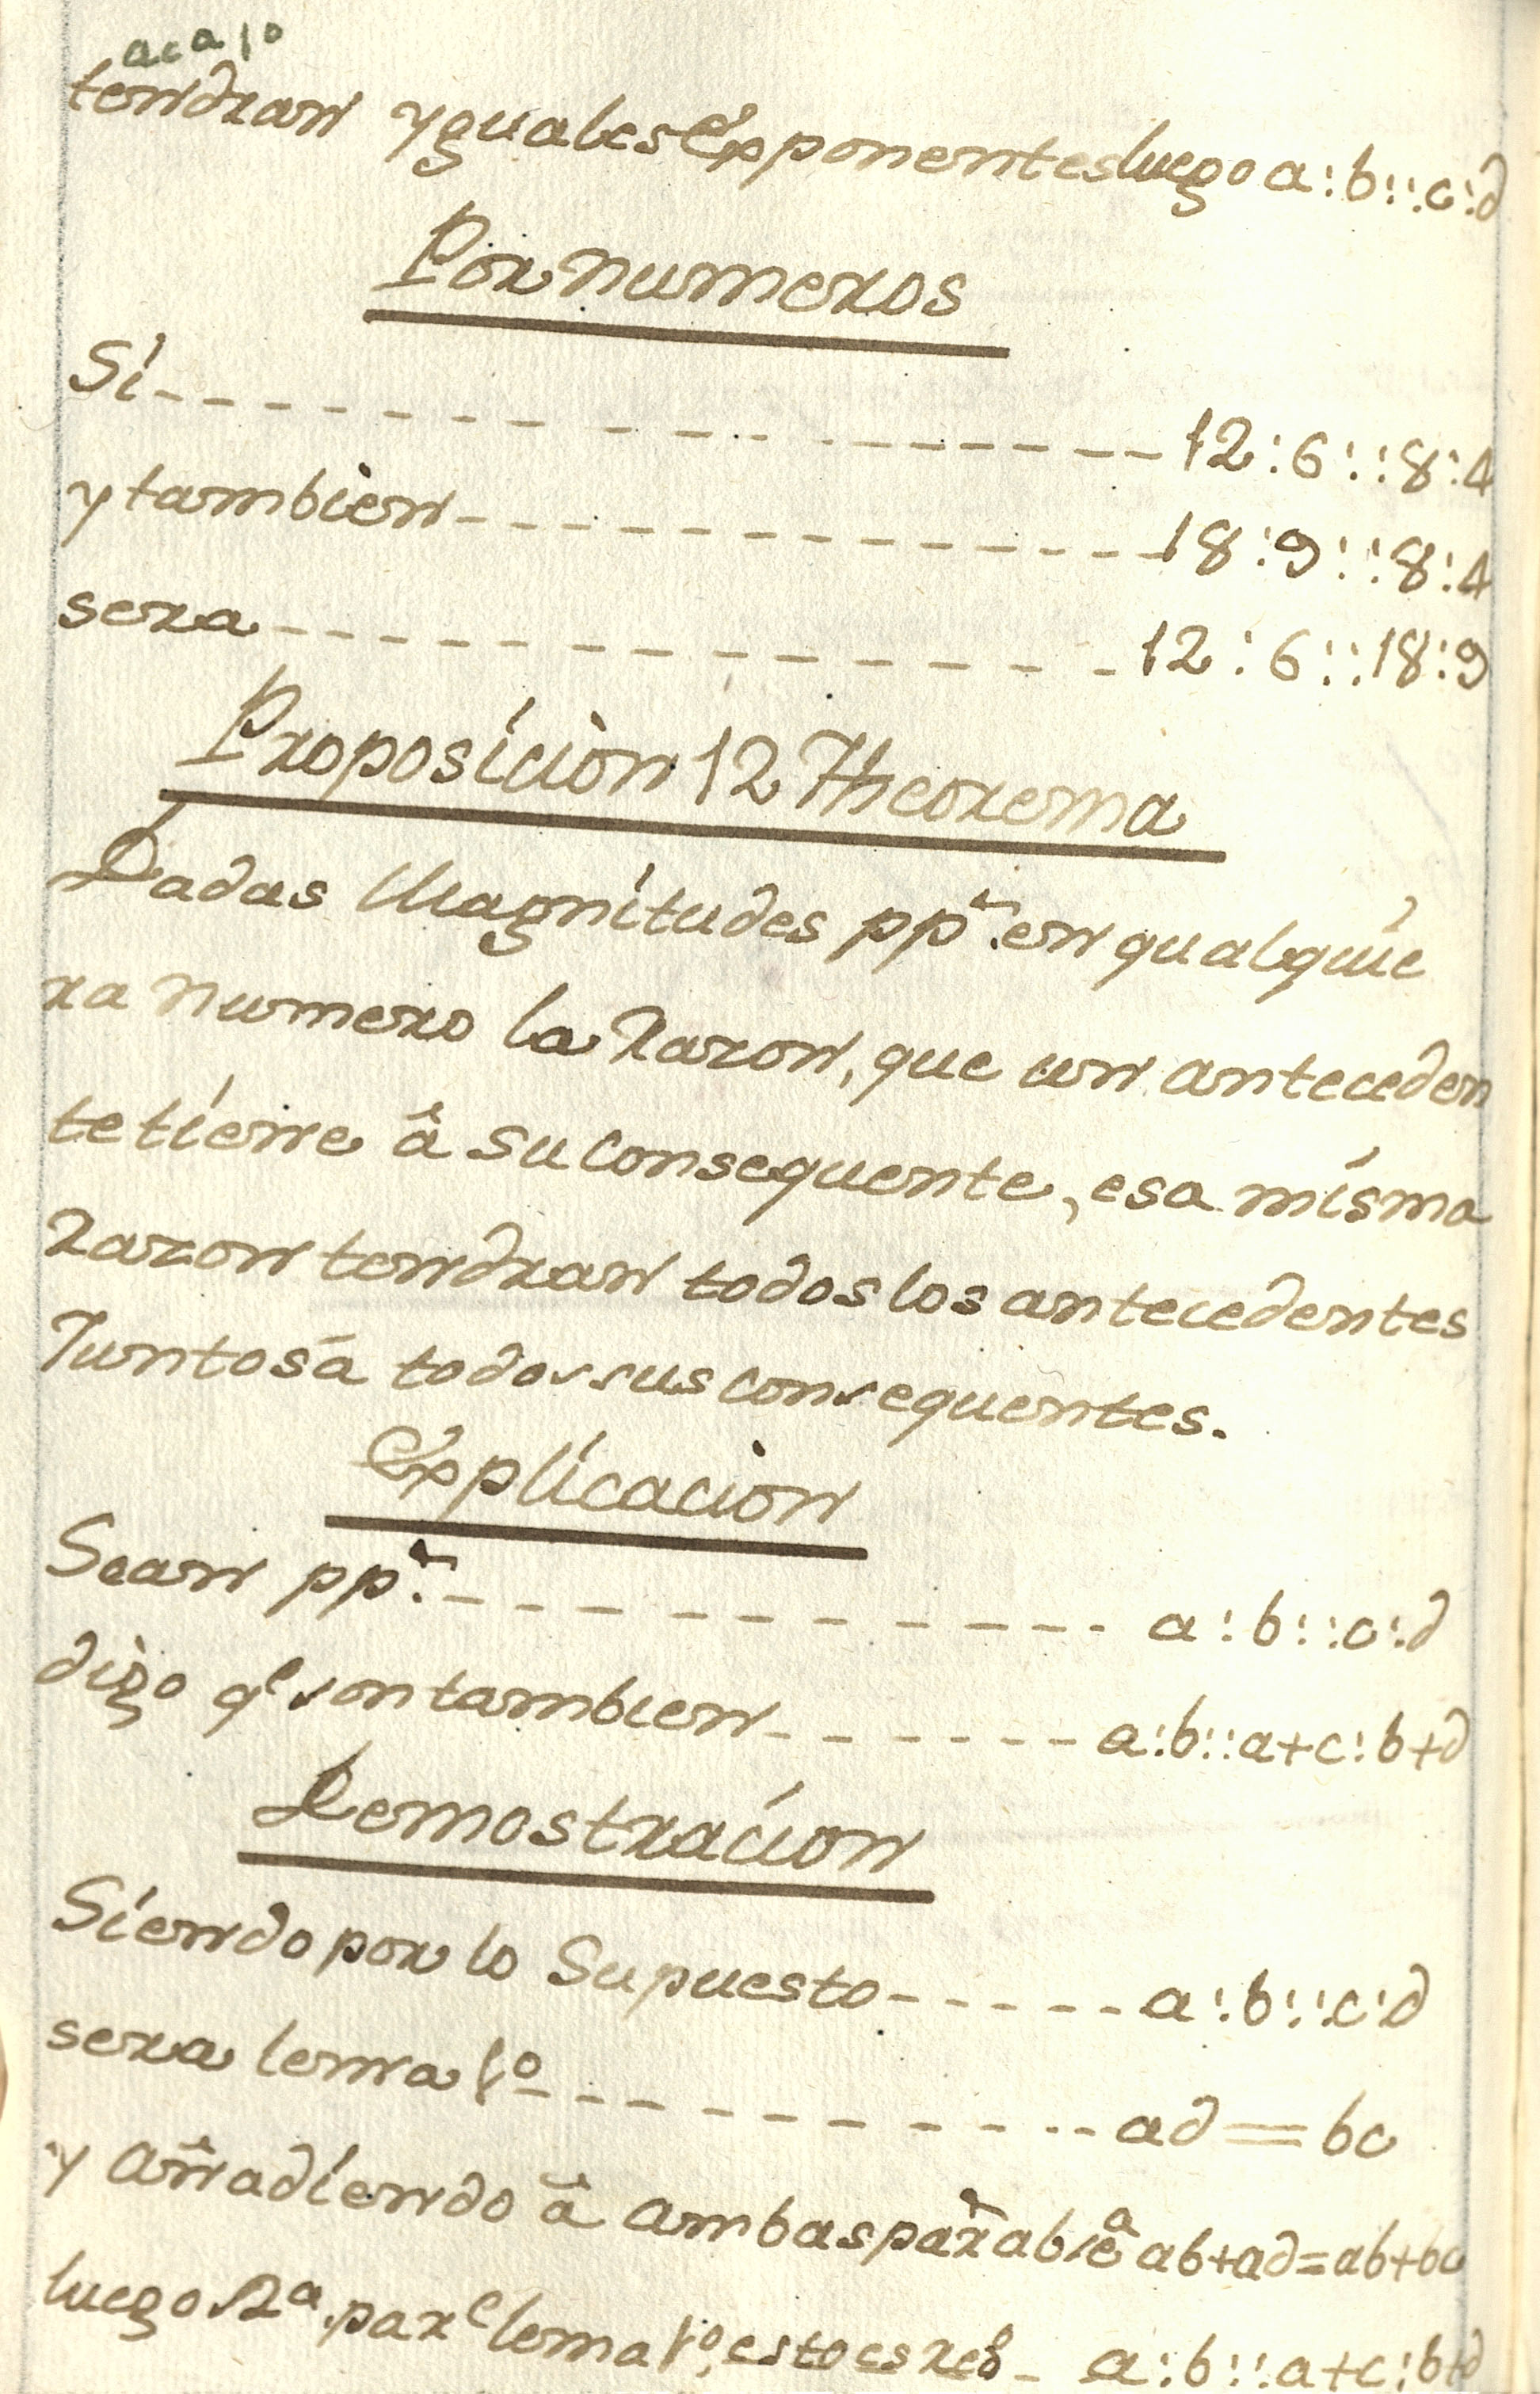 aca 1º
tendran yguales Exponentes luego a:b::c:d
Por numeros
Si - - - - - - 12:6::8:4
y tambièn - - - - - - 18:9::8:4
sera - - - - - - 12:6::18:9
Proposiciòn 12 Theorema
Dadas Magnitudes ppˢ. en qualquie
ra numero la Razon, que un anteceden
te tiene â su consequente, esa misma
Razon tendran todos los antecedentes
Juntos á todos sus consequentes.
Explicacion
Sean ppˢ. - - - - - - a:b::c:d
dìgo qᵉ son tambien - - - - - - a:b::a+c:b+d
Demostracion
Siendo por lo Supuesto - - - - - a:b::c:d
sera lema 1º - - - - - - ad = bc
y añadiendo â ambas parˢ ab sêᵃ ab+ad=ab+bc
luego 2ª parᵉ lema 1º, esto es - a:b::a+c:b+d